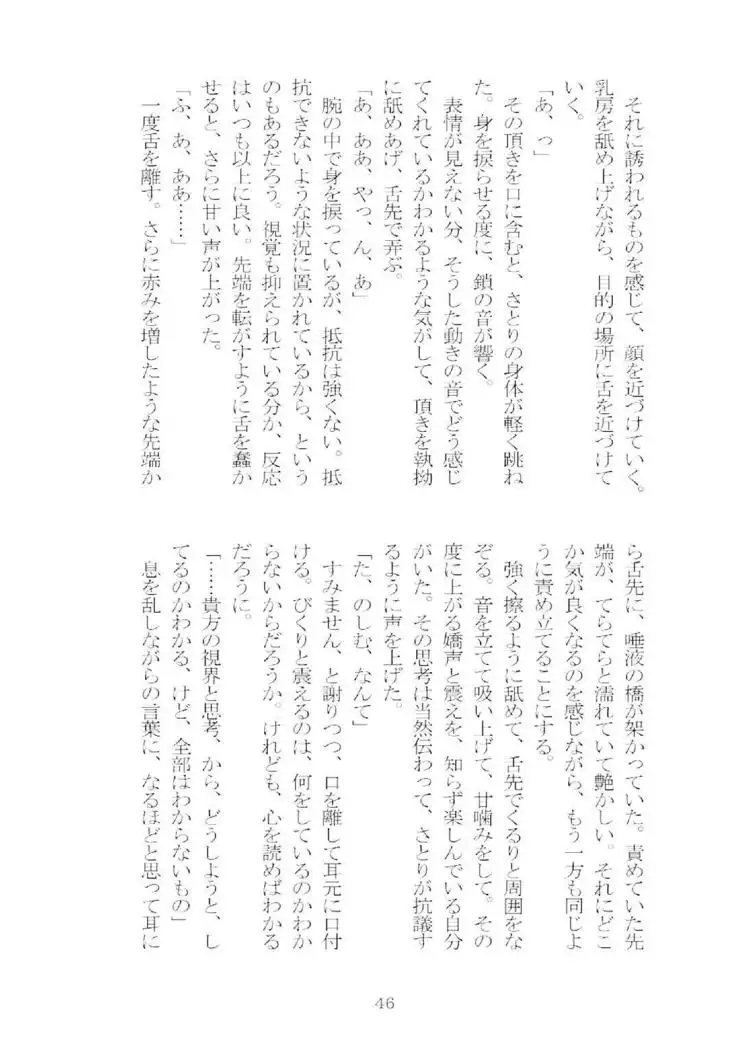 それに誘われるものを感じて、顔を近づけていく。
乳房を舐め上げながら、目的の場所に舌を近づけて
いく。
「あ、っ」
その頂きを口に含むと、さとりの身体が軽く跳ね
た。身を捩らせる度に、鎖の音が響く。
表情が見えない分、そうした動きの音でどう感じ
てくれているかわかるような気がして、頂きを執拗
に舐めあげ、舌先で弄ぶ。
「あ、ああ、やっ、ん、あ」
腕の中で身を捩っているが、抵抗は強くない。抵
抗できないような状況に置かれているから、という
のもあるだろう。視覚も抑えられている分か、反応
はいつも以上に良い。先端を転がすように舌を蠢か
せると、さらに甘い声が上がった。
「ふ、あ、ああ……」
一度舌を離す。さらに赤みを増したような先端か
ら舌先に、唾液の橋が架かっていた。責めていた先
端が、てらてらと濡れていて艶かしい。それにどこ
か気が良くなるのを感じながら、もう一方も同じよ
うに責め立てることにする。
強く擦るように舐めて、舌先でくるりと周囲をな
ぞる。音を立てて吸い上げて、甘噛みをして。その
度に上がる嬌声と震えを、知らず楽しんでいる自分
がいた。その思考は当然伝わって、さとりが抗議す
るように声を上げた。
「た、のしむ、なんて」
すみません、と謝りつつ、口を離して耳元に口付
ける。びくりと震えるのは、何をしているのかわか
らないからだろうか。けれども、心を読めばわかる
だろうに。
「……貴方の視界と思考、から、どうしようと、し
てるのかわかる、けど、全部はわからないもの」
息を乱しながらの言葉に、なるほどと思って耳に
46